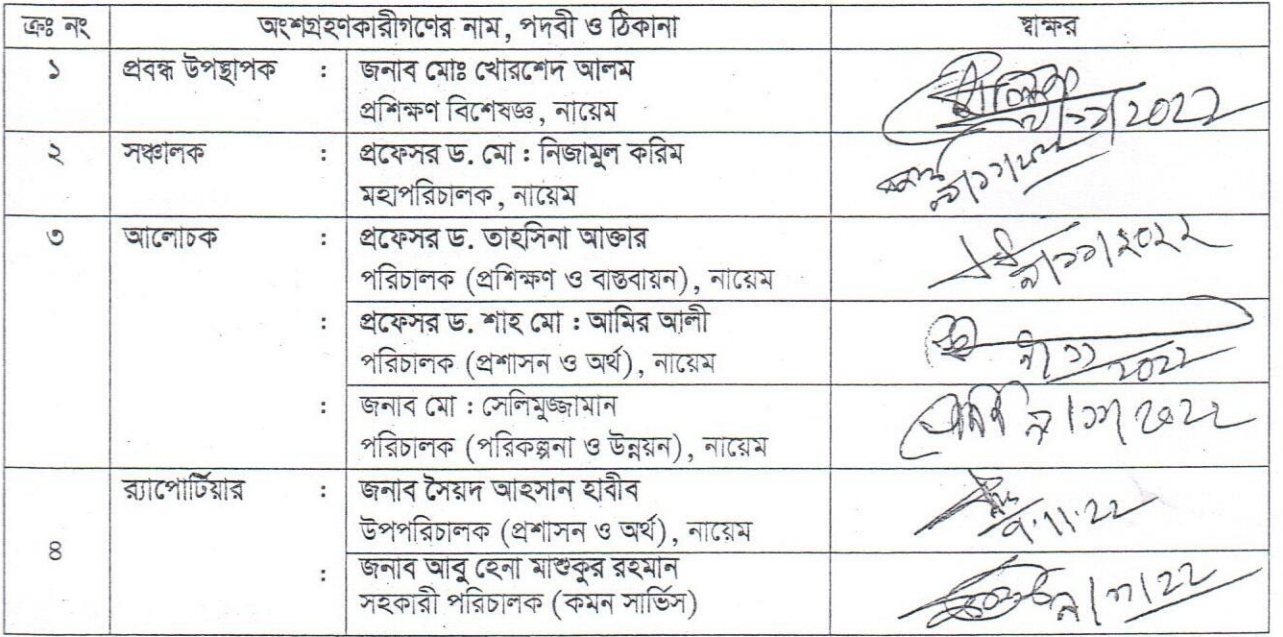 ক্রঃ নং অংশগ্রহণকারীগণের নাম, পদবী ও ঠিকানা স্বাক্ষর
১ প্রবন্ধ উপস্থাপক : জনাব মোঃ খোরশেদ আলম
প্রশিক্ষণ বিশেষজ্ঞ, নায়েম
২ সঞ্চালক : প্রফেসর ড. মো : নিজামুল করিম
মহাপরিচালক, নায়েম
৩ আলোচক : প্রফেসর ড. তাহসিনা আক্তার
পরিচালক (প্রশিক্ষণ ও বাস্তবায়ন), নায়েম
: প্রফেসর ড. শাহ মো : আমির আলী
পরিচালক (প্রশাসন ও অর্থ), নায়েম
: জনাব মো : সেলিমুজ্জামান
পরিচালক (পরিকল্পনা ও উন্নয়ন), নায়েম
৪ র‍্যাপোর্টিয়ার : জনাব সৈয়দ আহসান হাবীব
উপপরিচালক (প্রশাসন ও অর্থ), নায়েম
: জনাব আবু হেনা মাশুকুর রহমান
সহকারী পরিচালক (কমন সার্ভিস)